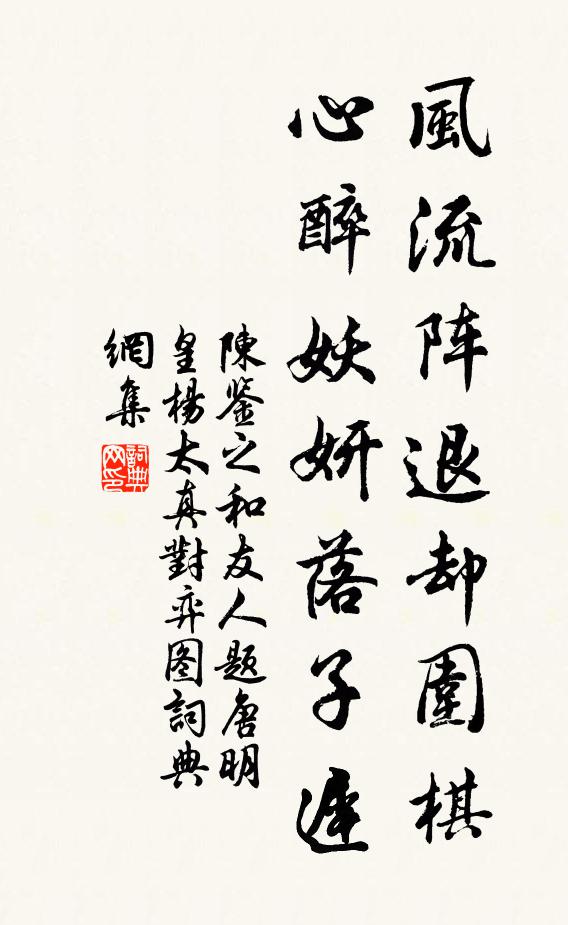 風流阵退却圍棋
心醉妖妍落子遲
陳鉴之和友人题唐明
皇楊太真對弈图詞典
網集
詞典
网印